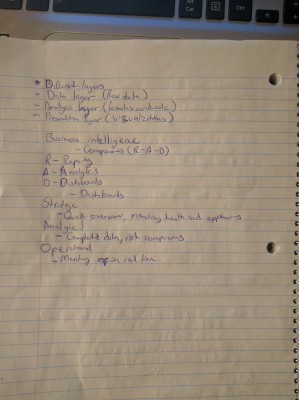 * Different layers
- Data layer (Raw data)
- Analysis layer (formulas and
- Presentation layer (Visualizations)
Business intelligence
- Components (R-A-D)
R - Reports
A - Analytics
D - Dashboards
- Dashboards
Strategic
- Quick overview, monitoring health and
Analytical
- Complete data, rich comparisons
Operational
- Monitoring in real time